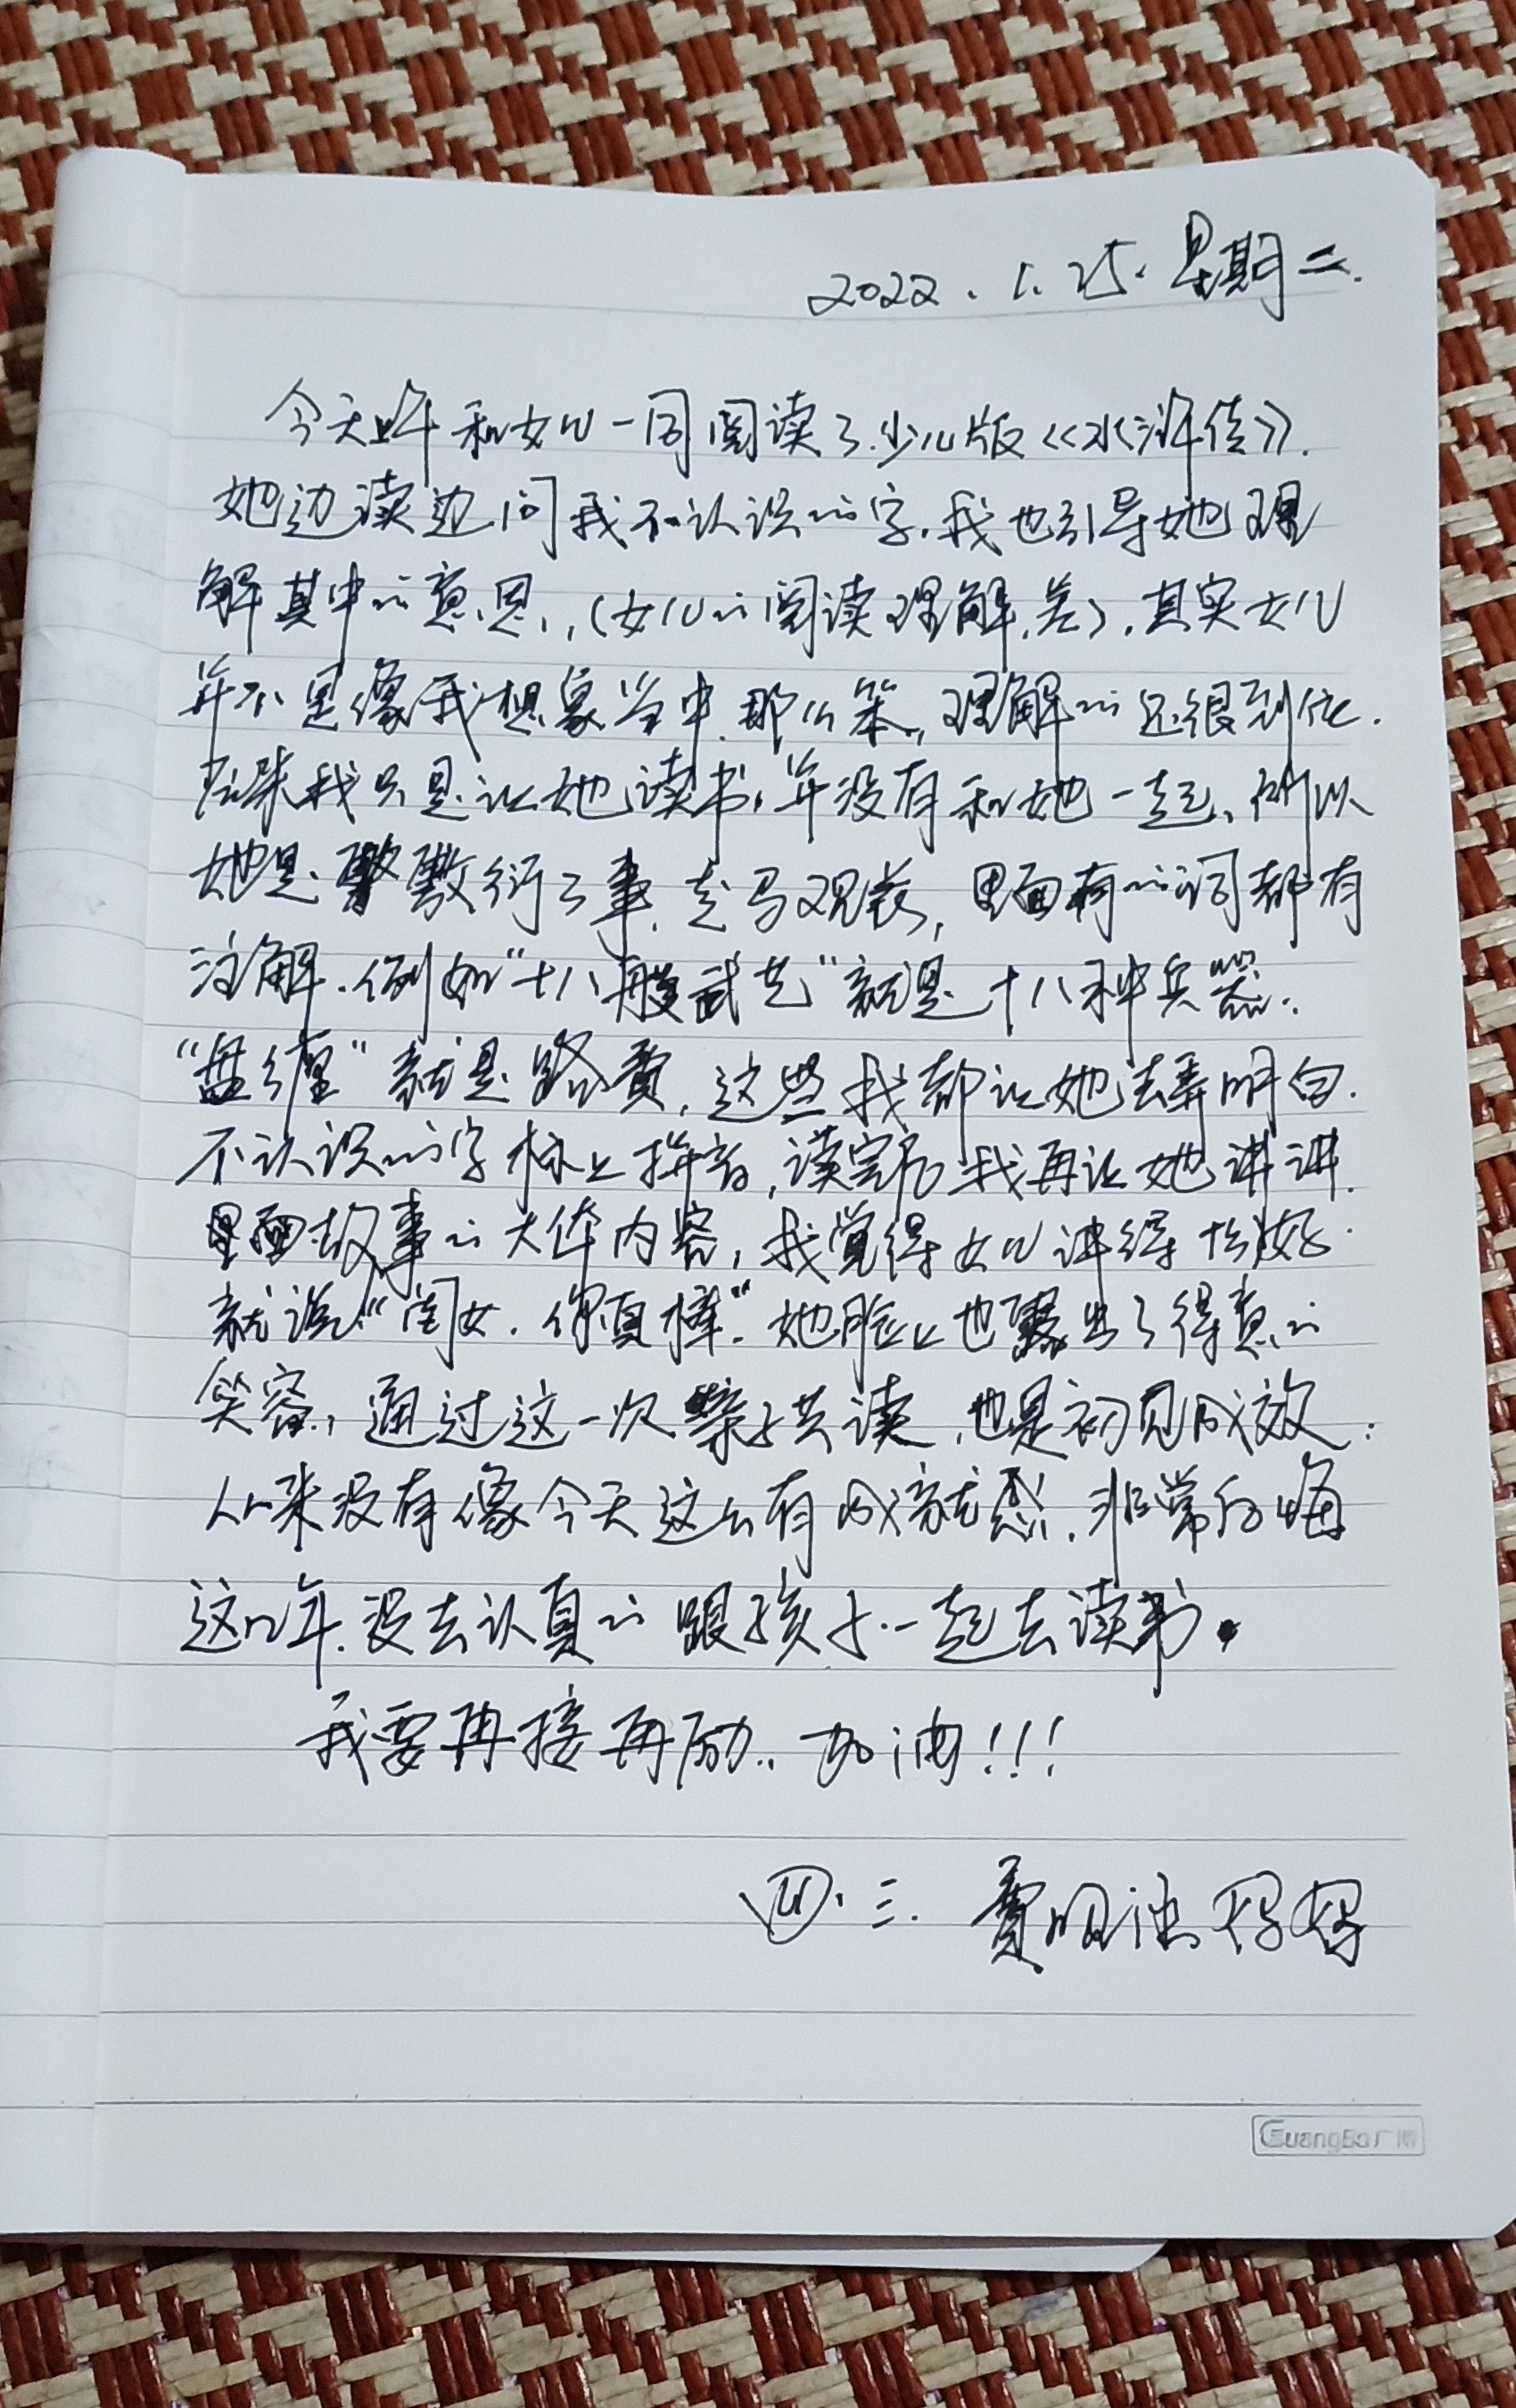 2022.1.25.星期二.
今天上午和女儿一同阅读了少儿版《《水浒传》》.
她边读边问我不认识的字.我也引导她理
解其中的意思,(女儿的阅读理解差).其实女儿
并不是像我想象当中那么笨,理解的还很到位.
原来我只是让她读书,并没有和她一起,所以
她是敷衍了事.走马观花,里面有的词都有
注解.例如“十八般武艺”就是十八种兵器.
“盘缠”就是路费,这些我都让她去弄明白.
不认识的字标上拼音,读完后我再让她讲讲
里面故事的大体内容,我觉得女儿讲得恰好
就说“闺女.你真棒”她脸上也露出了得意的
笑容,通过这一次亲子共读,也是初见成效.
从来没有像今天这么有成就感.非常后悔
这几年没去认真的跟孩子一起去读书.
我要再接再励..加油!!!
四.三. 费明 妈妈
GuangBo广博